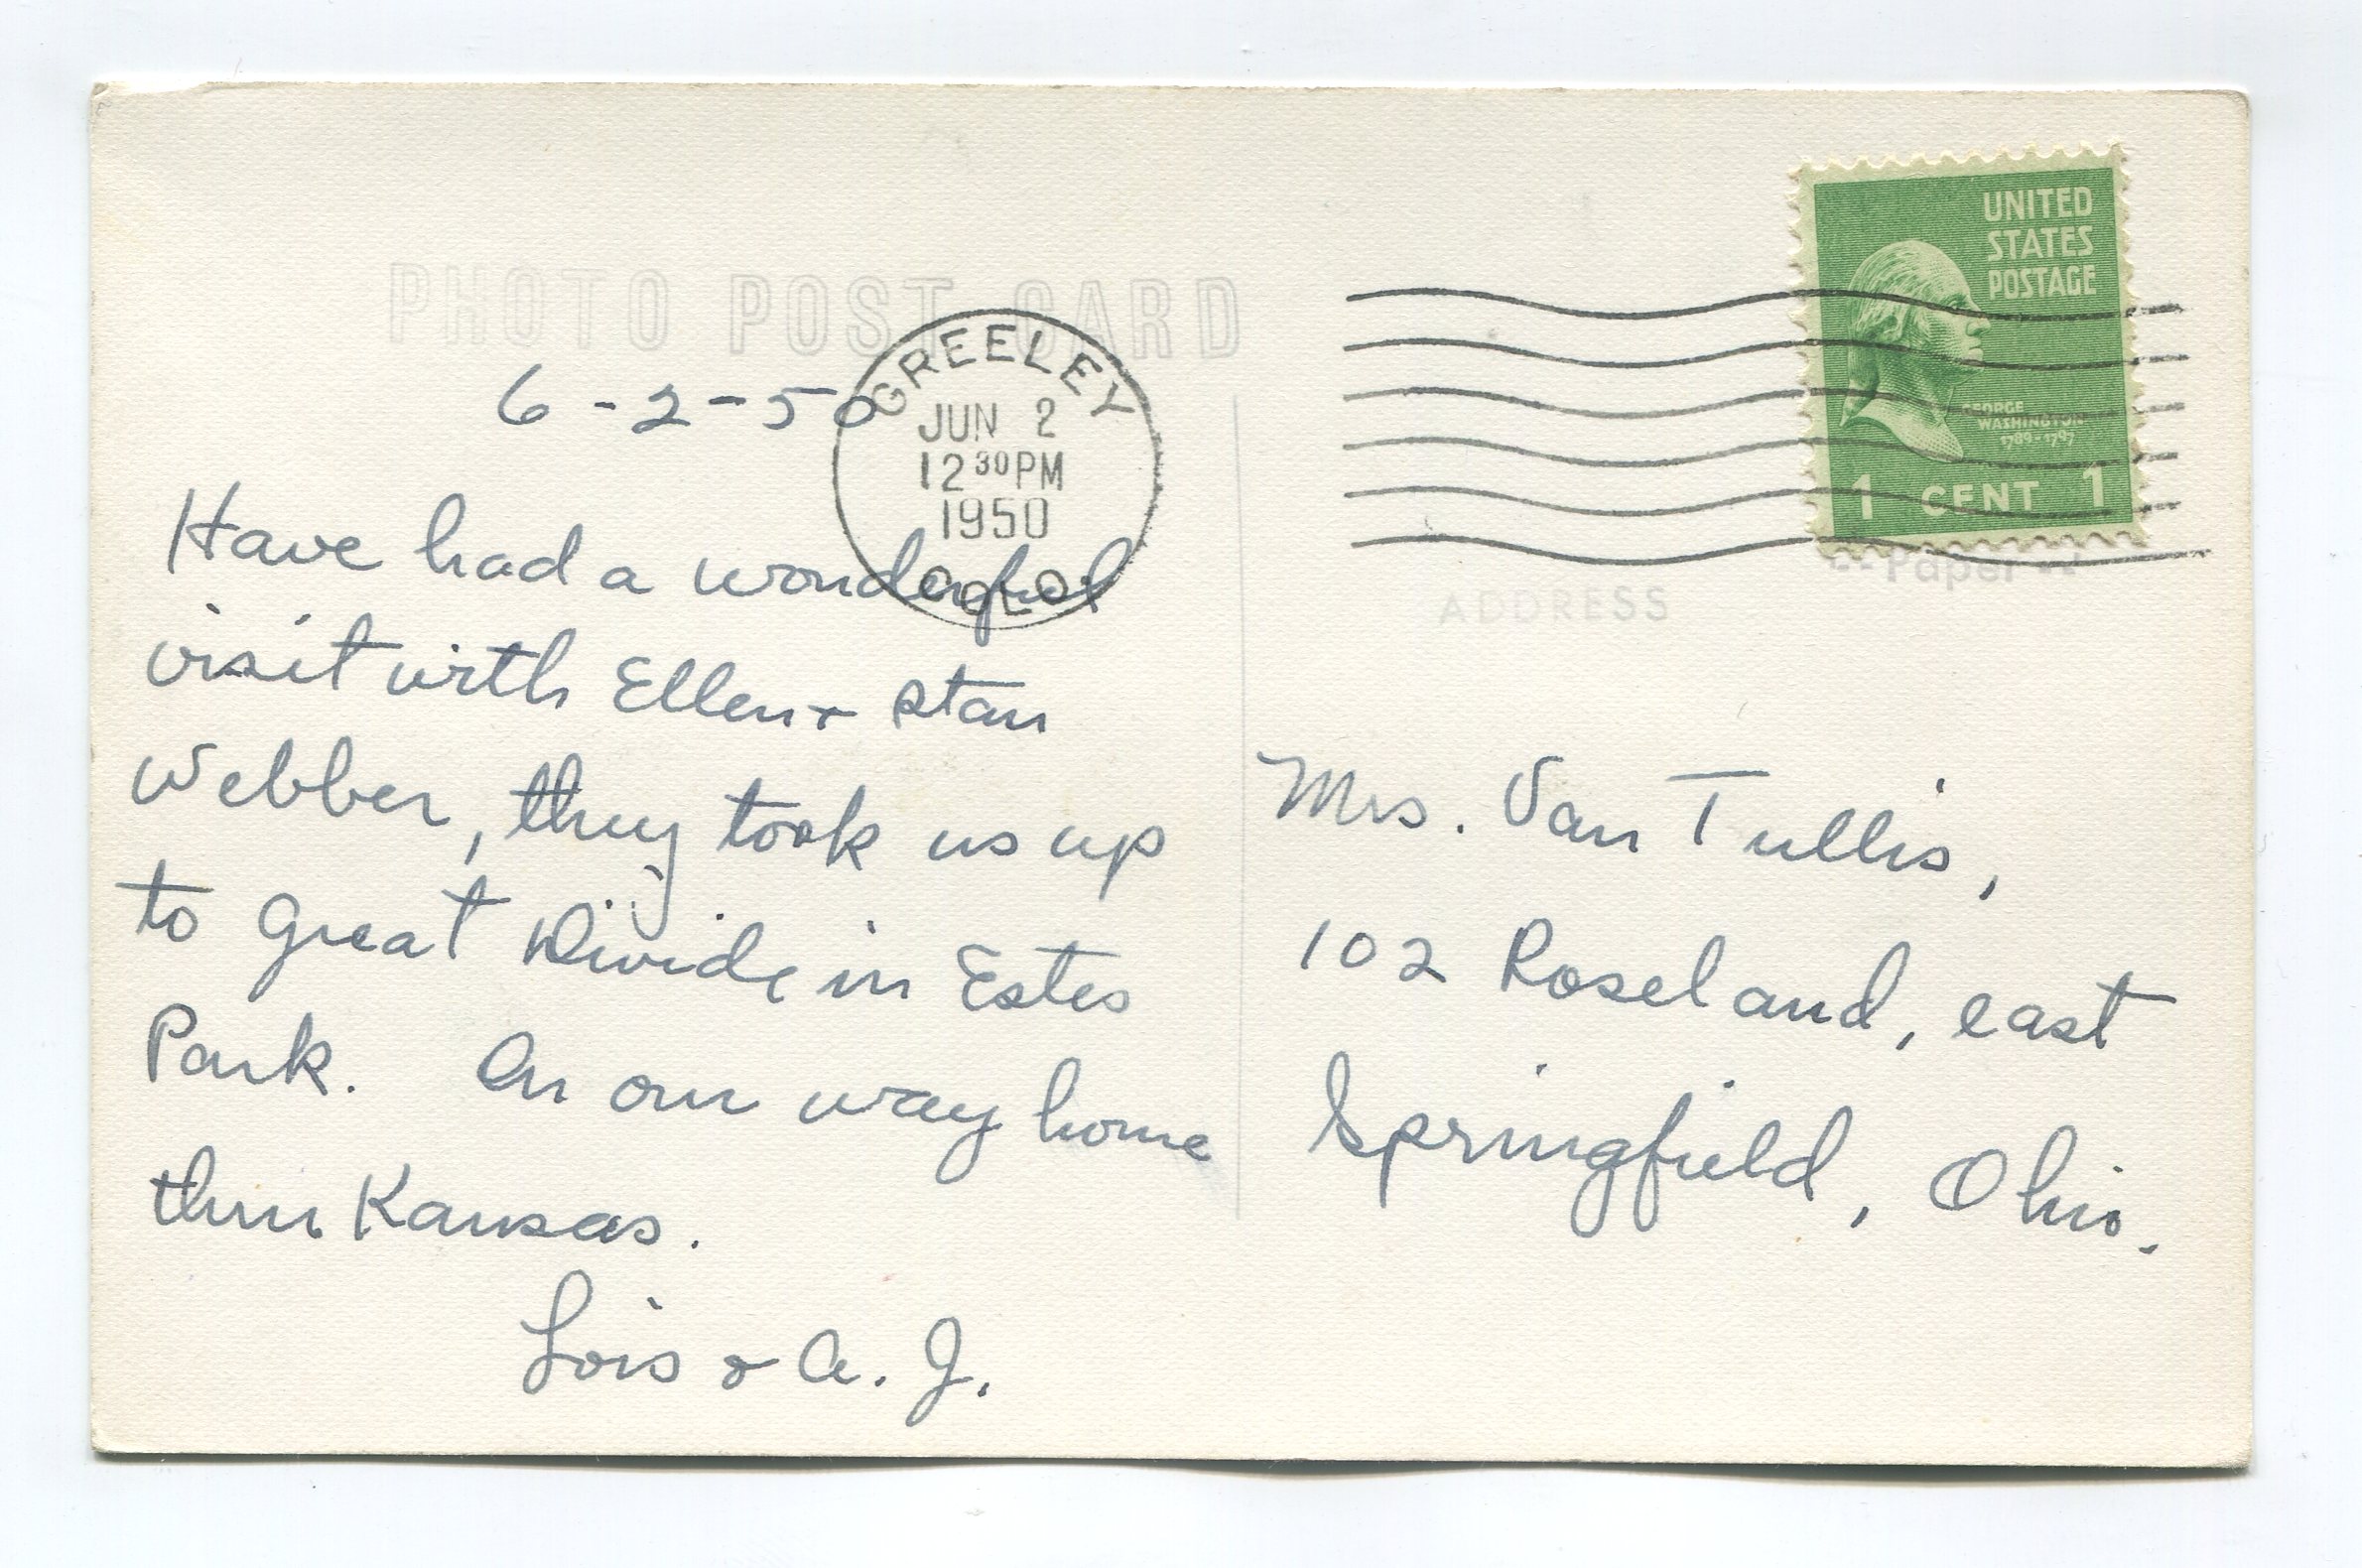 PHOTO POST CARD
6-2-50
Have had a wonderful
visit with Ellen + Stan
Webber, they took us up
to Great Divide in Estes
Park. On our way home
thru Kansas.
Lois & A. J.
GREELEY
JUN 2
12 30 PM
1950
COLO.
UNITED
STATES
POSTAGE
GEORGE
WASHINGTON
1789-1797
1 CENT 1
Paper
ADDRESS
Mrs. Van Tullis,
102 Roseland, east
Springfield, Ohio.